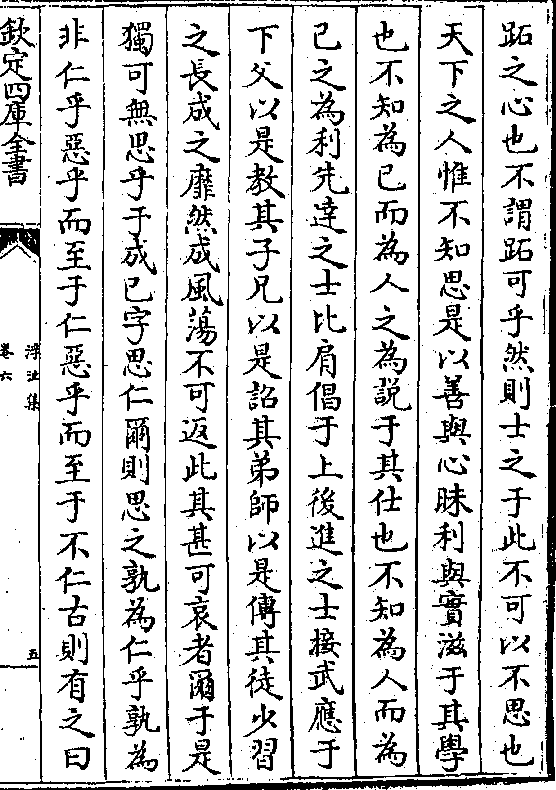 跖之心也不謂跖可乎然則士之于此不可以不思也
天下之人惟不知思是以善與心昧利與實滋于其學
也不知為已而為人之為說于其仕也不知為人而為
已之為利先達之士比肩倡于上後進之士接武應于
下父以是教其子兄以是詔其弟師以是傳其徒少習
之長成之靡然成風蕩不可返此其甚可哀者爾于是
獨可無思乎于成已字思仁爾則思之孰為仁乎孰為
非仁乎惡乎而至于仁惡乎而至于不仁古則有之曰
欽定四庫全書
浮沚集
卷六
五